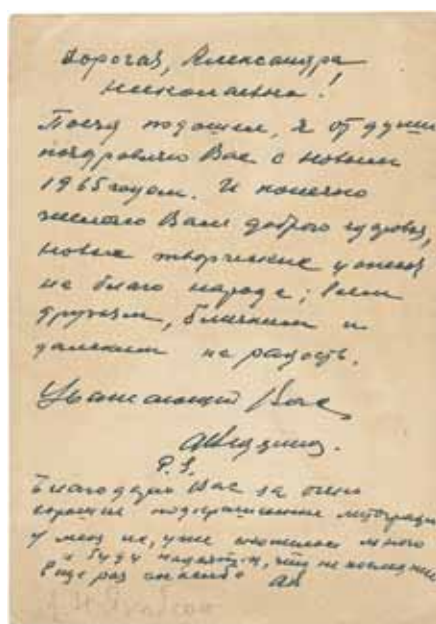 Дорогая, Александра
Николаевна!
я от души
поздравляю Вас с новым
1965 годом. И конечно
желаю Вам доброго здоровья,
новых творческих успехов
на благо народа; всем
друзьям, близким и
далеким на радость.
Уважающий Вас
P.S.
Благодарю Вас за очень
хорошие литографии
у меня их, уже много
и буду надеятся, что не последние
Еще раз спасибо